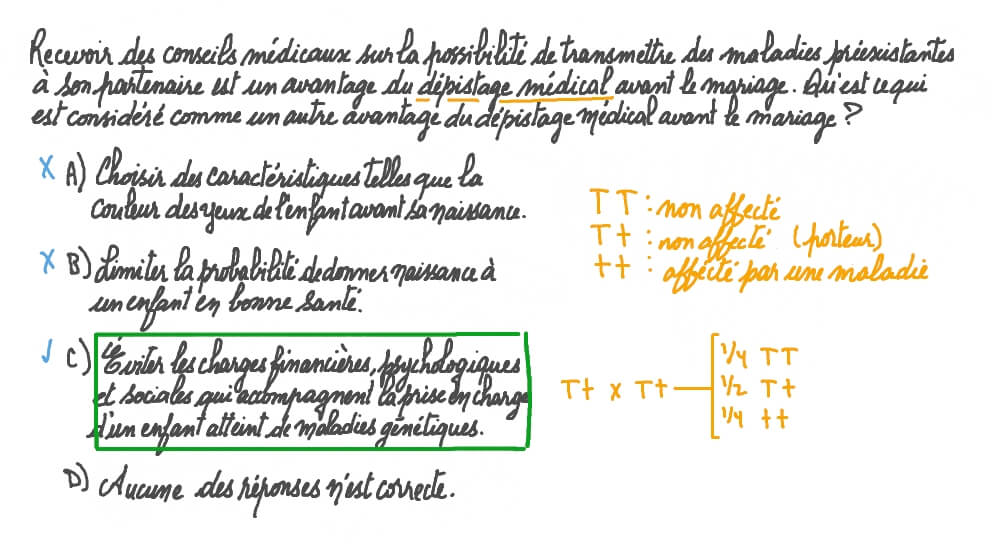 Recevoir des conseils médicaux sur la possibilité de transmettre des maladies préexistantes
à son partenaire est un avantage du dépistage médical avant le mariage. Qu'est ce qui
est considéré comme un autre avantage du dépistage médical avant le mariage ?
X A) Choisir des caractéristiques telles que la
couleur des yeux de l'enfant avant sa naissance.
X B) Limiter la probabilité de donner naissance à
un enfant en bonne santé.
✓ C) Éviter les charges financières, psychologiques
et sociales qui accompagnent la prise en charge
d'un enfant atteint de maladies génétiques.
D) Aucune des réponses n'est correcte.
TT : non affecté
Tt : non affecté (porteur)
tt : affecté par une maladie
Tt x Tt
1/4 TT
1/2 Tt
1/4 tt